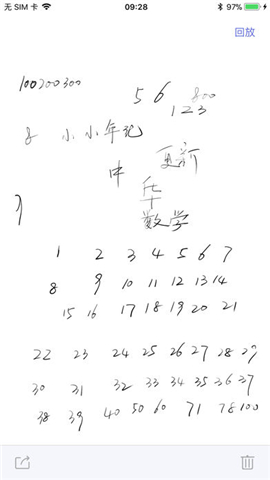 无 SIM 卡 09:28 97%
回放
100200300
5 6 800
123
8 小小年记
中 更新
数学
1 2 3 4 5 6 7
8 9 10 11 12 13 14
15 16 17 18 19 20 21
22 23 24 25 26 27 28 29
30 31 32 33 34 35 36 37
38 39 40 50 60 71 78 100